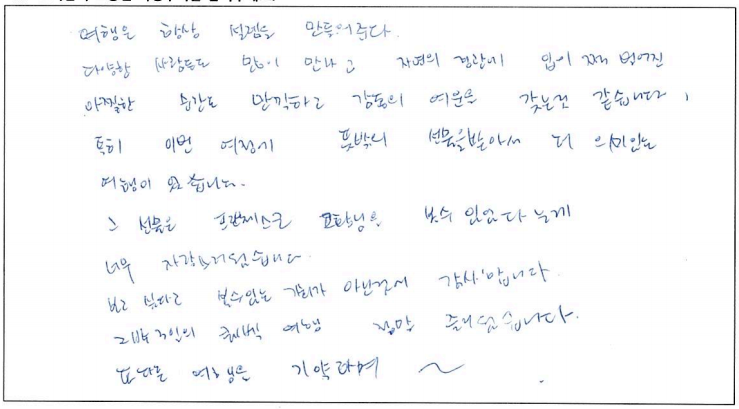 여행은 항상 설렘을 만들어준다.
다양한 사람들도 많이 만나고 자연의 경관에 입이 쩌억 벌어진
아찔한 순간도 만끽하고 감동의 여운을 갖는것 같습니다.
특히 이번 여정에 뜻밖의 선물을받아서 더 의미있는
여행이 였습니다.
그 선물은 프란체스코 교황님을 볼수 있었다는게
너무 자랑스러웠습니다.
보고 싶다고 볼수있는 기회가 아닌것에 감사합니다.
퀘벡 여행 정말 즐거웠습니다.
또다른 여행을 기약하며 ~